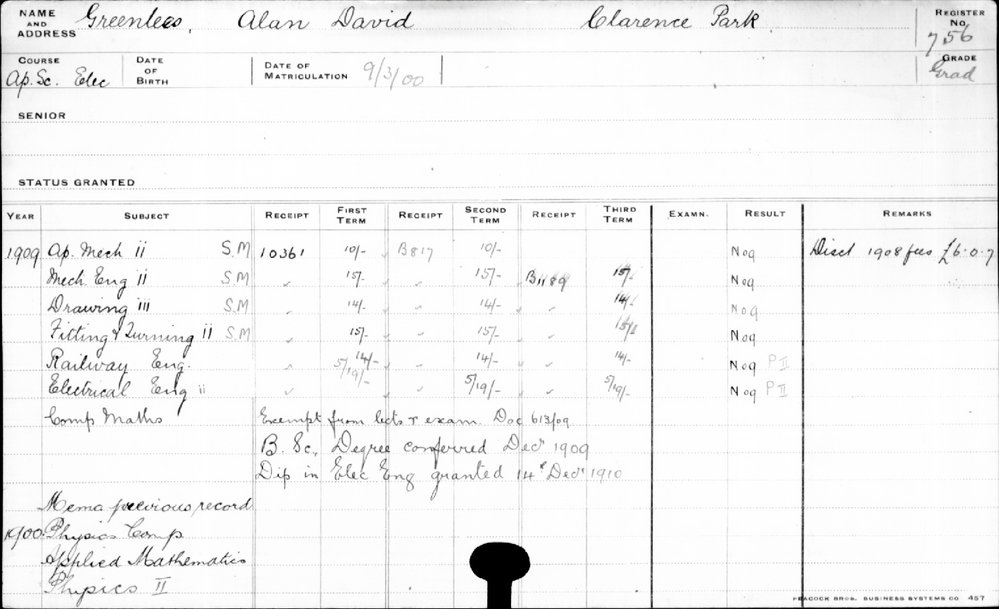 NAME AND ADDRESS Greenlees, Alan David Clarence Park REGISTER No. 756
COURSE Ap. Sc. Elec DATE OF BIRTH DATE OF MATRICULATION 9/3/00 GRADE Grad
SENIOR
STATUS GRANTED
YEAR SUBJECT RECEIPT FIRST TERM RECEIPT SECOND TERM RECEIPT THIRD TERM EXAMN. RESULT REMARKS
1909 Ap. Mech ii S.M 10361 10/- B817 10/- Nog Disct 1908 fees £6.0.7
Mech Eng ii S.M " 15/- " 15/- B1189 15/- Nog
Drawing iii S.M " 14/- " 14/- " 14/- Nog
Fitting & Turning ii S.M " 15/- " 15/- " 15/- Nog
Railway Eng. " 14/- " 14/- " 14/- Nog P II
Electrical Eng ii " 5/19/- " 5/19/- " 5/19/- Nog P II
Comp Maths Exempt from lects & exam. Doc 613/09
B. Sc., Degree conferred Decr 1909
Dip in Elec Eng granted 14th Decr 1910
Memo previous record
1900 Physics Comp
Applied Mathematics
Physics II
PEACOCK BROS. BUSINESS SYSTEMS CO 457